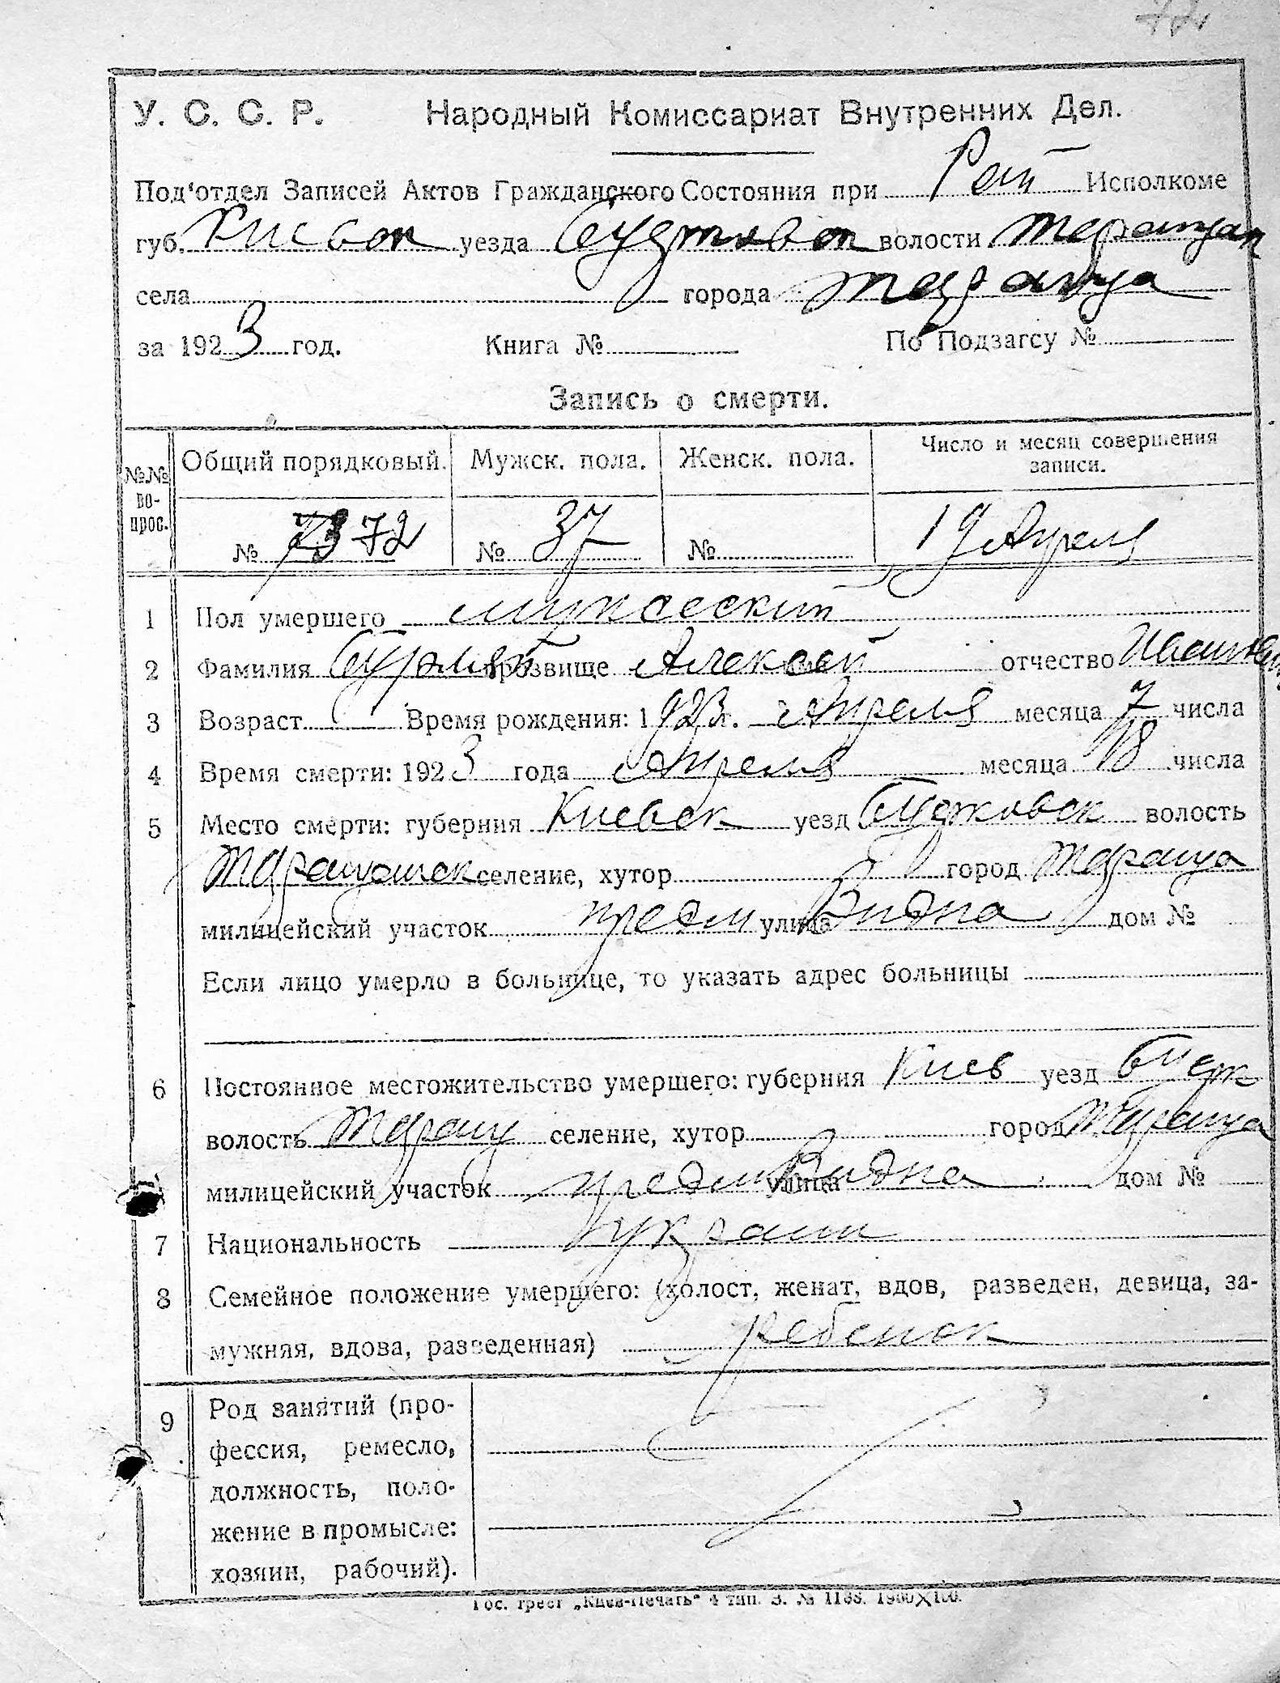 72
У. С. С. Р. Народный Комиссариат Внутренних Дел.
Под‘отдел Записей Актов Гражданского Состояния при Рай Исполкоме
губ. Киевск уезда волости Таращан
села города Тараща
за 1923 год. Книга № По Подзагсу №
Запись о смерти.
№№ во- прос. Общий порядковый. Мужск. пола. Женск. пола. Число и месяц совершения записи.
№ 73 72 № 37 № 19 Апреля
1 Пол умершего мужеский
2 Фамилия прозвище Алексей отчество
3 Возраст Время рождения: 1923 г. Апреля месяца 7 числа
4 Время смерти: 1923 года Апреля месяца 18 числа
5 Место смерти: губерния Киевск уезд волость
селение, хутор город Тараща
милицейский участок предм улица дом №
Если лицо умерло в больнице, то указать адрес больницы
6 Постоянное местожительство умершего: губерния Киев уезд
волость Таращ селение, хутор город Тараща
милицейский участок предм улица дом №
7 Национальность украин
8 Семейное положение умершего: (холост, женат, вдов, разведен, девица, за-
мужняя, вдова, разведенная) ребенок
9 Род занятий (про-
фессия, ремесло,
должность, поло-
жение в промысле:
хозяин, рабочий).
Гос. трест „Киев-Печать“ 4 тип. З. № 1188. 1900X100.